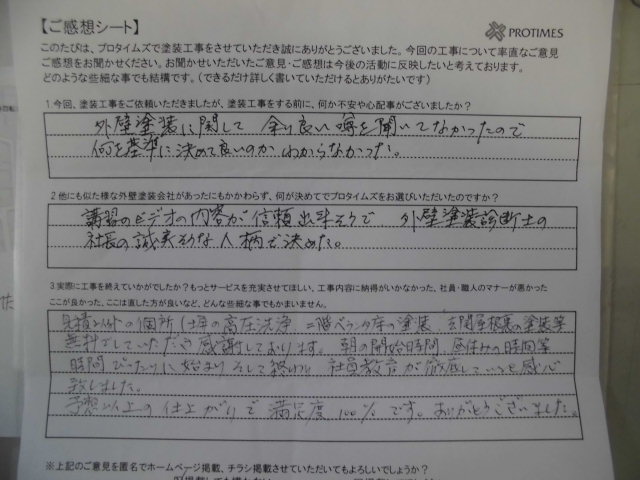 【ご感想シート】
PROTIMES
このたびは、プロタイムズで塗装工事をさせていただき誠にありがとうございました。今回の工事について率直なご意見
ご感想をお聞かせください。お聞かせいただいたご意見・ご感想は今後の活動に反映したいと考えております。
どのような些細な事でも結構です。（できるだけ詳しく書いていただけるとありがたいです）
1.今回、塗装工事をご依頼いただきましたが、塗装工事をする前に、何か不安や心配事がございましたか？
外壁塗装に関して 余り良い噂を聞いてなかったので
何を基準に決めて良いのかわからなかった。
2.他にも似た様な外壁塗装会社があったにもかかわらず、何が決めてでプロタイムズをお選びいただいたのですか？
講習のビデオの内容が信頼出来そうで 外壁塗装診断士の
社長の誠実そうな人柄で決めた。
3.実際に工事を終えていかがでしたか？もっとサービスを充実させてほしい、工事内容に納得がいかなかった、社員・職人のマナーが悪かった
ここが良かった、ここは直した方が良いなど、どんな些細な事でもかまいません。
見積り以外の個所 の高圧洗浄 二階ベランダ床の塗装 玄関屋根裏の塗装等
無料でしていただき感謝しております。朝の開始時間、昼休みの時間等
時間ぴったりに始まりそして終わり 社員教育が徹底していると感心
致しました。
予想以上の仕上がりで満足度100%です。ありがとうございました。
※上記のご意見を匿名でホームページ掲載、チラシ掲載させていただいてもよろしいでしょうか？